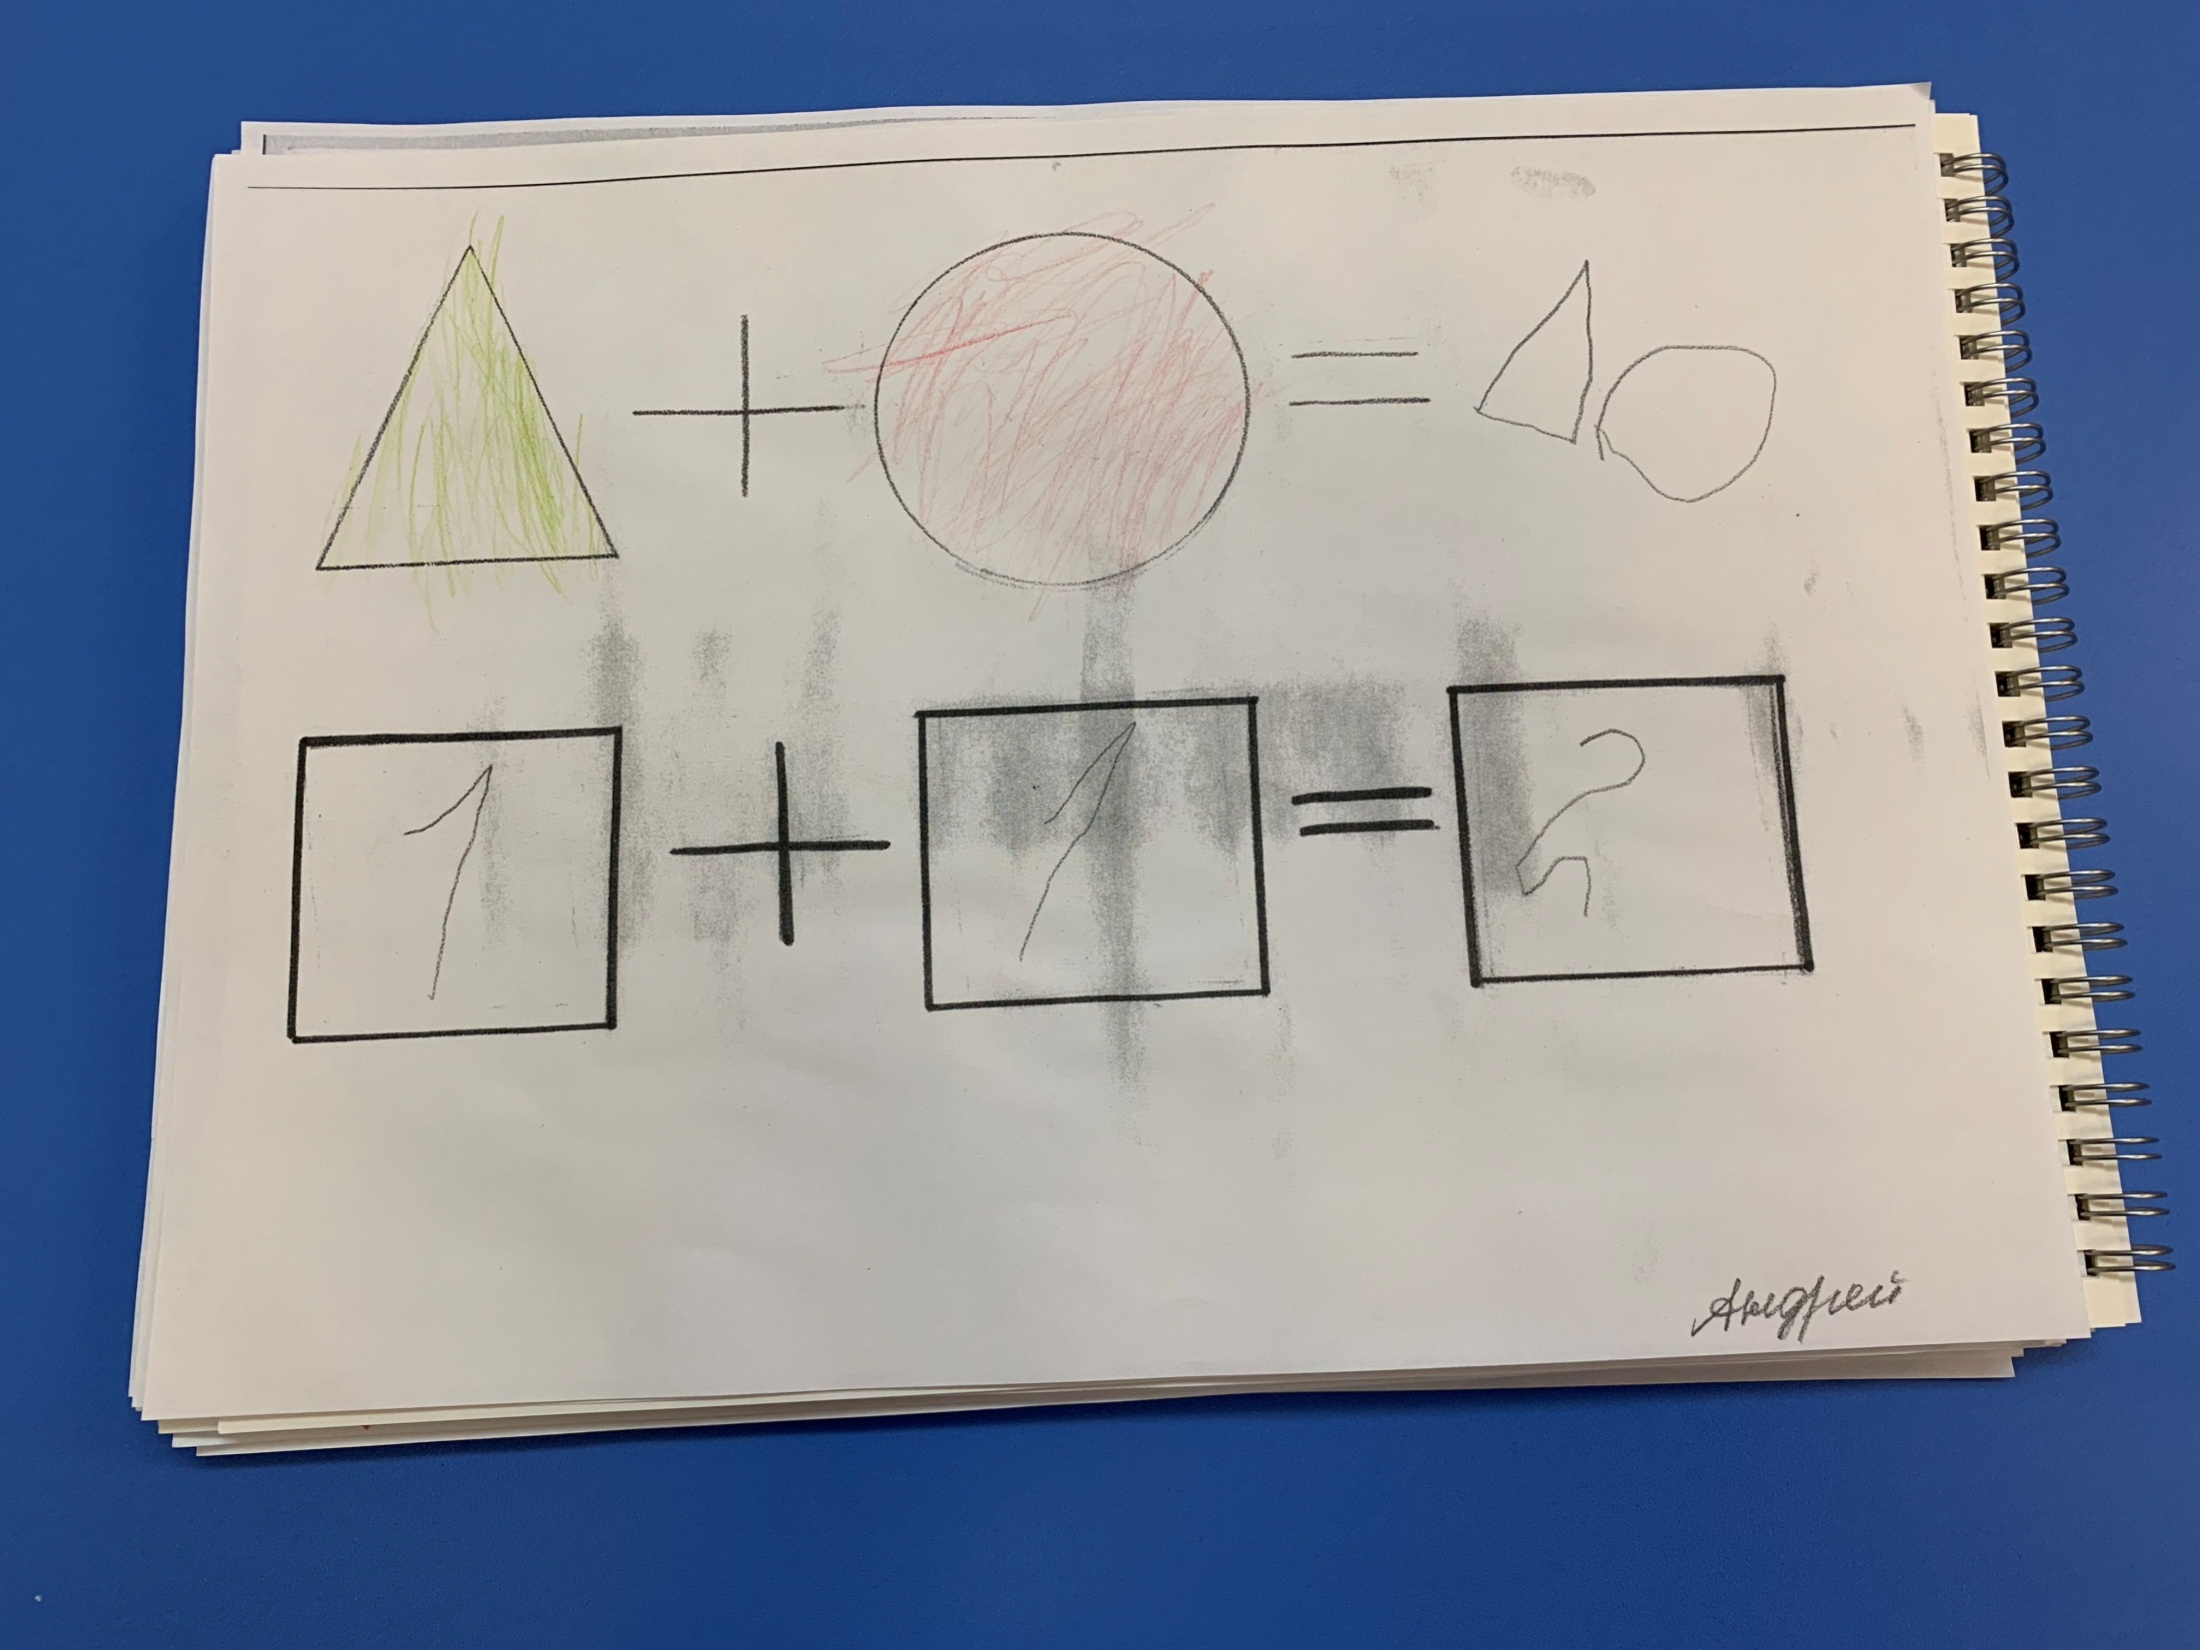 + =
1 + 1 = 2
Андрей